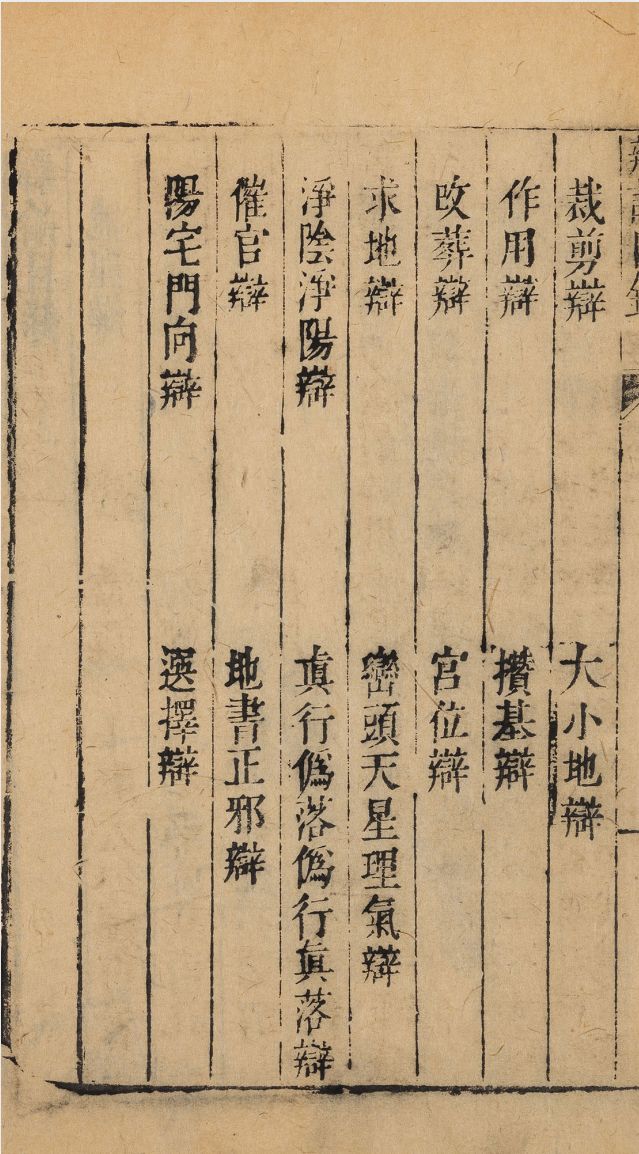 裁剪辯　大小地辯
作用辯　攢基辯
改葬辯　宮位辯
求地辯　巒頭天星理氣辯
淨陰淨陽辯　真行僞落僞行真落辯
催官辯　地書正邪辯
陽宅門向辯　選擇辯